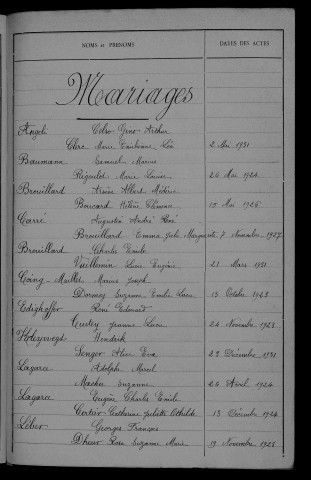 NOMS et PRÉNOMS DATES DES ACTES
Mariages
Angeli Celso Gino Arthur
Clerc Marie Emilienne Léa 2 Mai 1931
Baumann Samuel Marius
Régnolet Marie Louise 26 Mai 1924
Brouillard Arsène Albert
Boucard Hélène 15 Mai 1926
Carré Augustin André René
Brouillard Emma Julie Marguerite 7 Novembre 1927
Brouillard Charles Emile
Vuillemin Lucie Eugénie 21 Mars 1931
Marius Joseph
Dormoy Suzanne Emilie Lucie 13 Octobre 1923
Edighoffer René Edouard
Jeanne Lucie 24 Novembre 1923
Hendrik
Senger Alice Eva 29 Décembre 1931
Lagara Adolphe Marcel
Suzanne 26 Avril 1924
Lagara Eugène Charles Emile
Catherine Juliette Othilde 13 Décembre 1924
Lébor Georges François
Rose Suzanne Marie 19 Novembre 1921